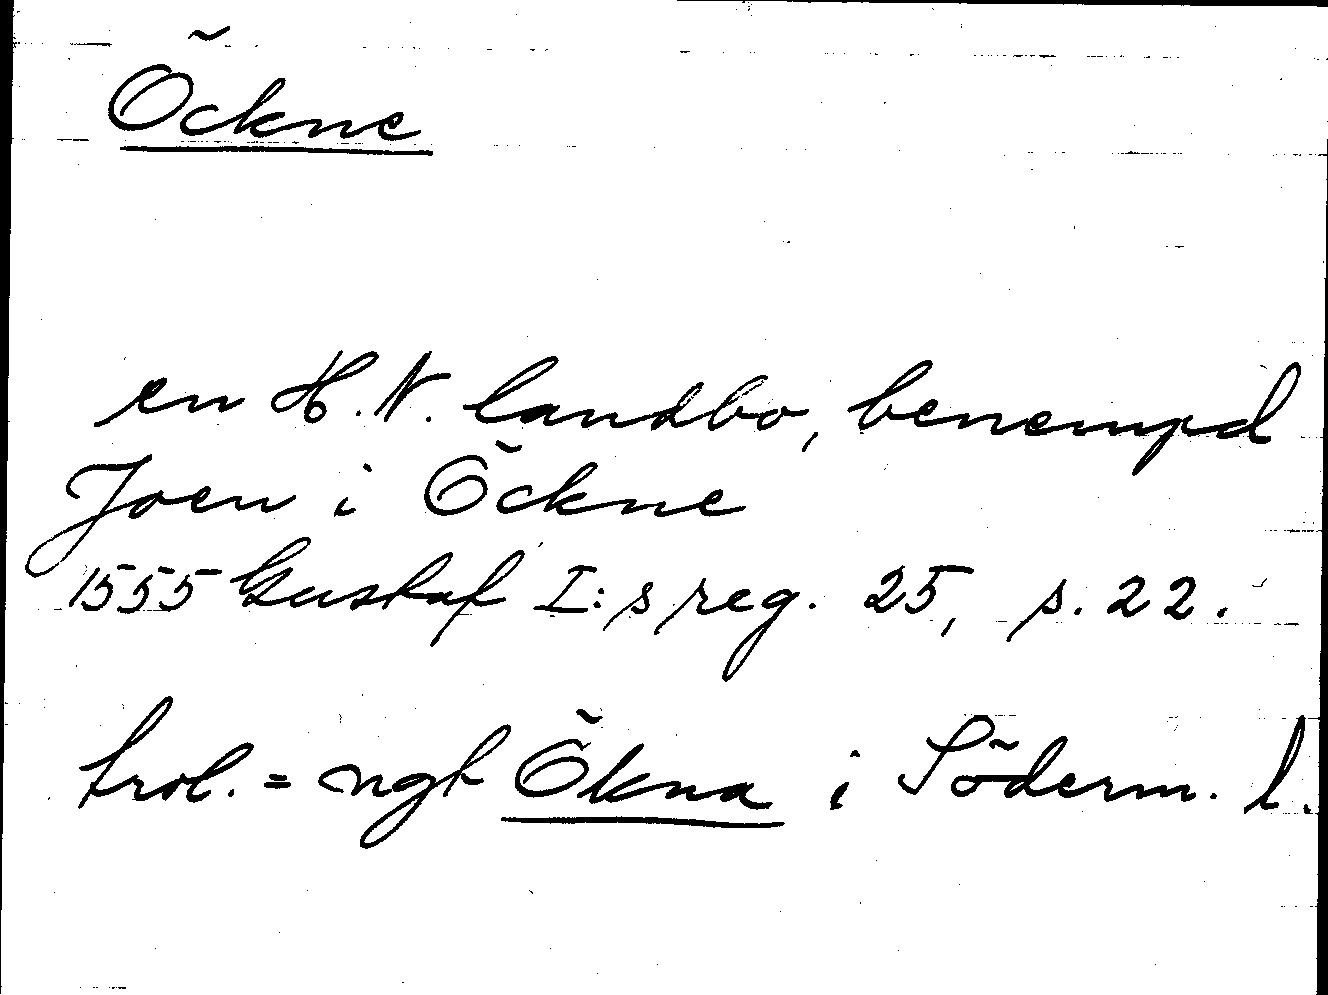 Öckne
en H. N. landbo, benempd
Joen i Öckne
1555 Gustaf I:s reg. 25, s. 22.
trol. = ngt Ökna i Söderm. l.